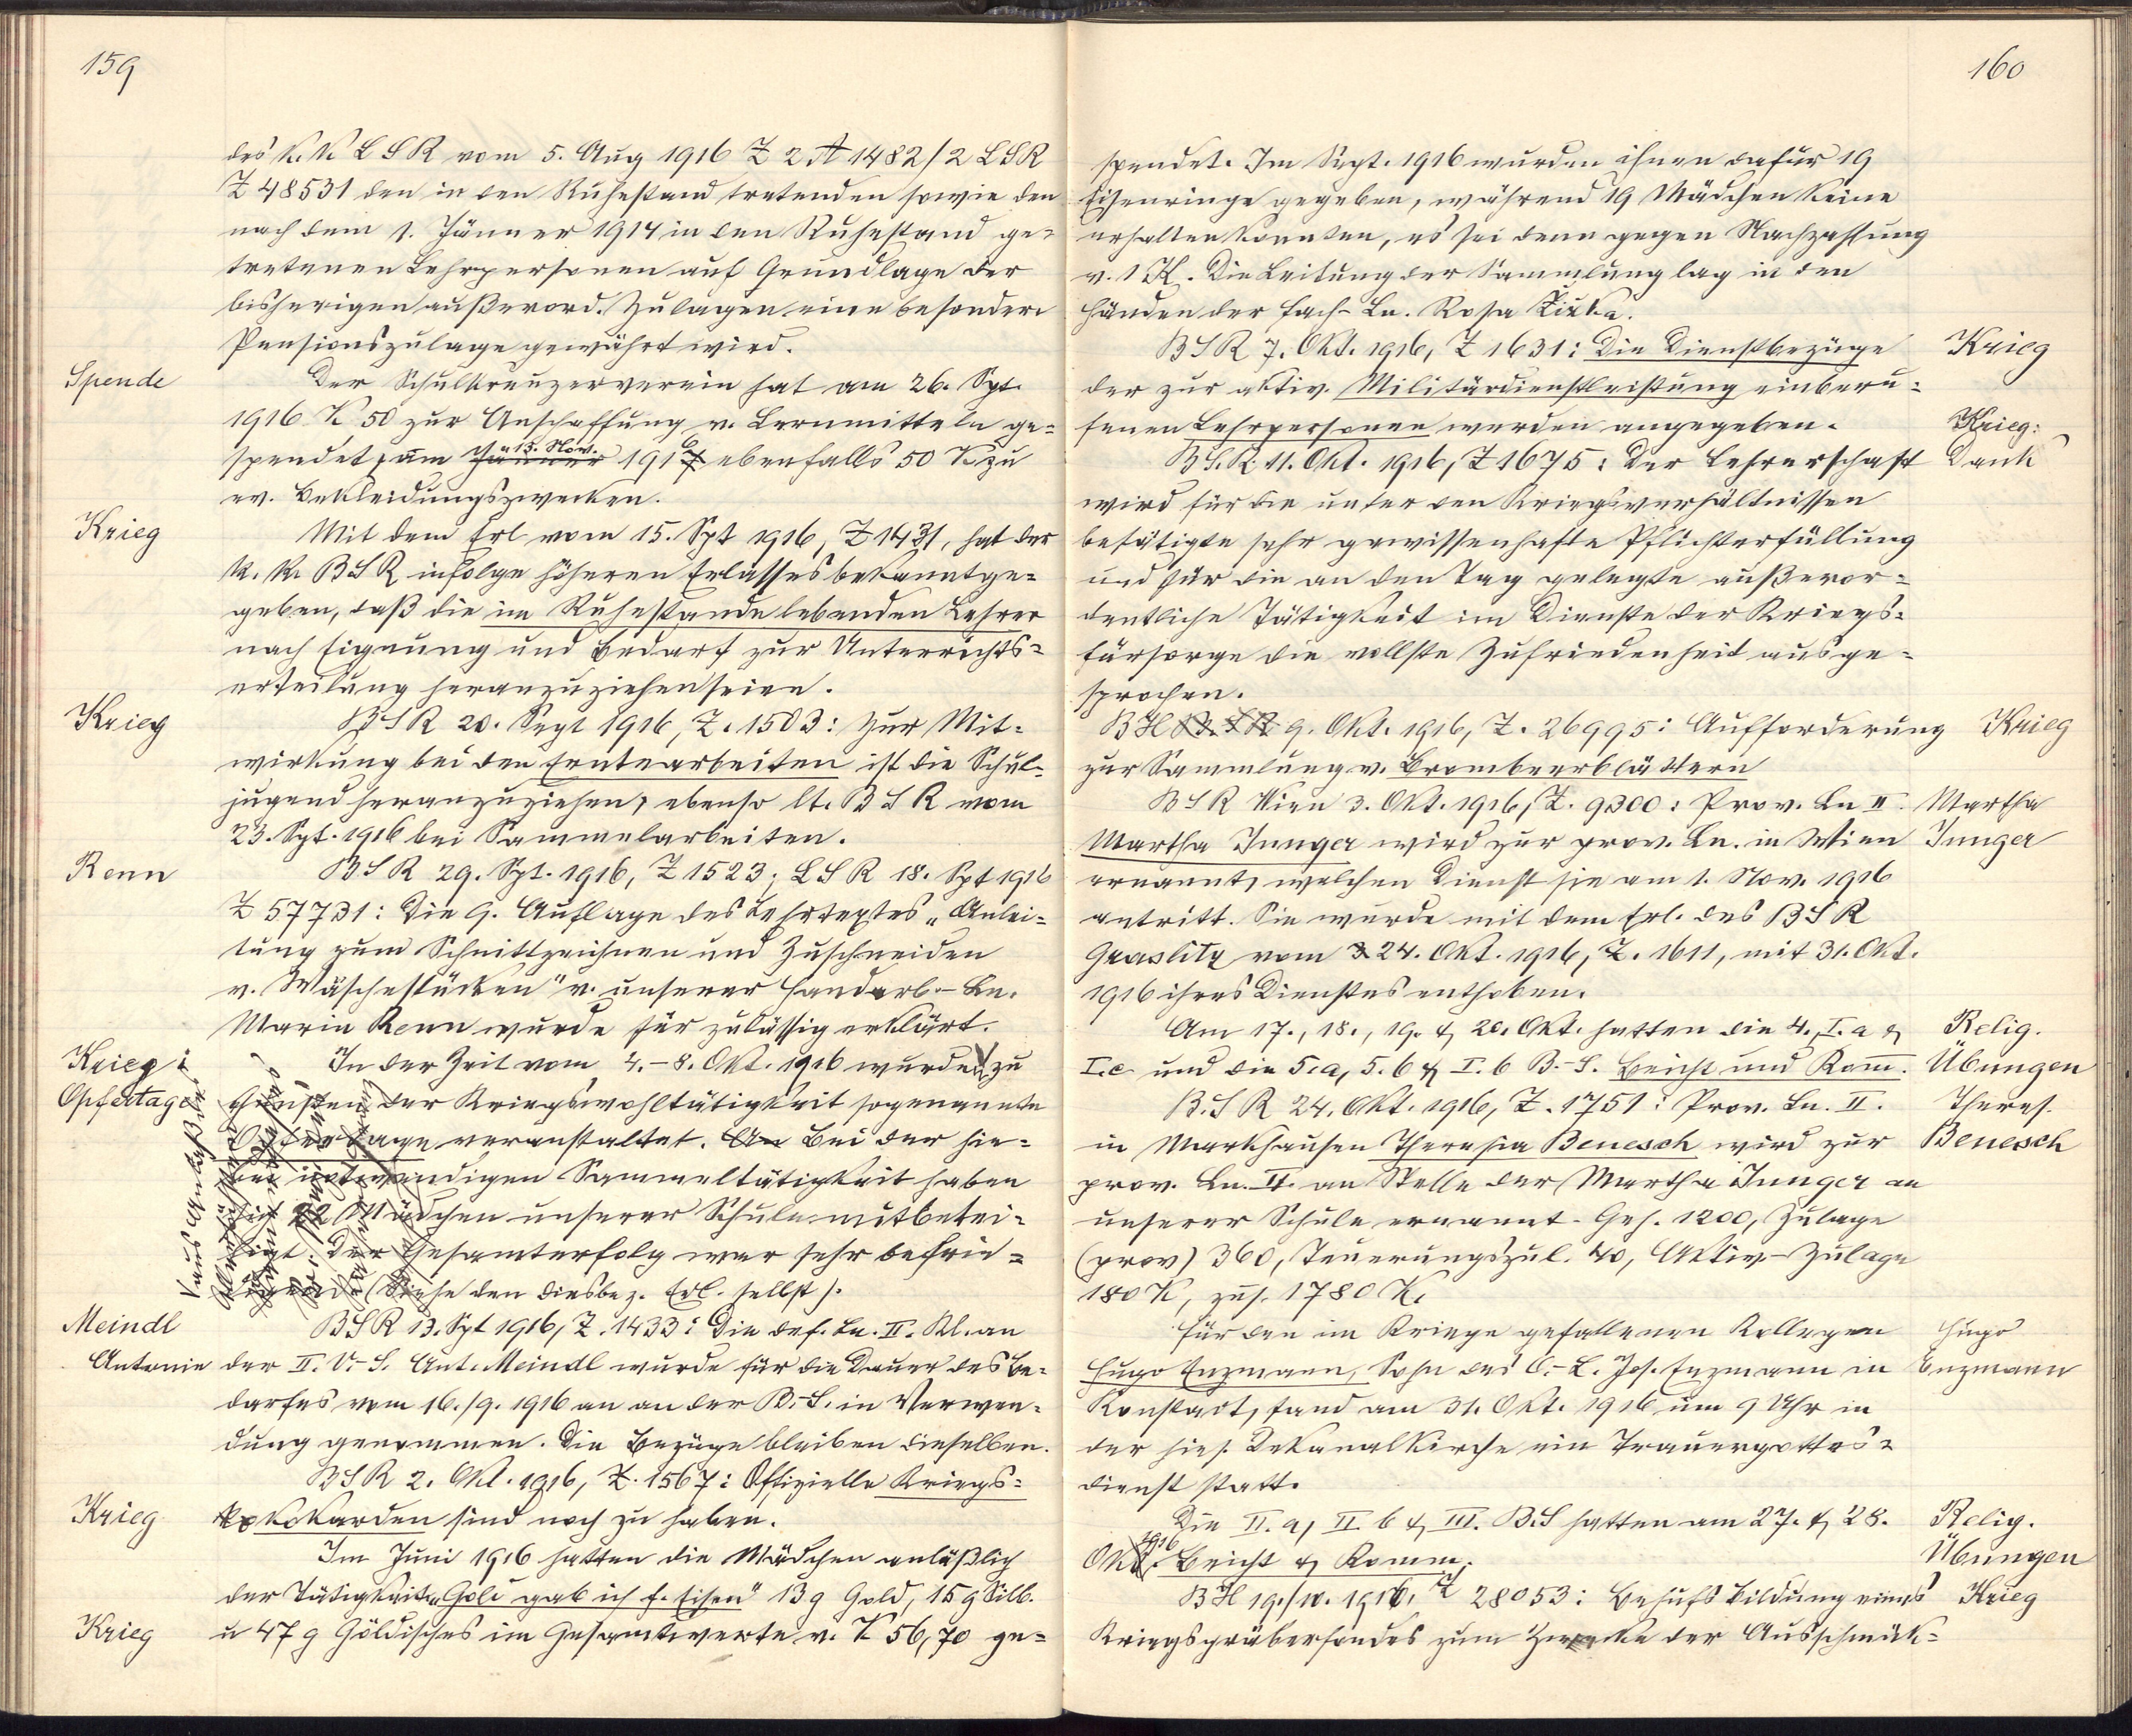 159
des k. k. L S R vom 5. Aug 1916 Z 2 A 1482/2 LSR
Z 48531 den in den Ruhestand tretenden sowie den
nach dem 1. Jänner 1914 in den Ruhestand ge=
tretenen Lehrpersonen auf Grundlage der
bisherigen außerord. Zulagen eine besondere
Pensionszulage gewährt wird.
Spende
Der Schulkreuzerverein hat am 26. Spt.
1916 K 50 zur Anschaffung v. Lernmitteln ge=
spendet, am Jänner 15. Nov. 1916 ebenfalls 50 K zu
ev. Bekleidungszwecken.
Krieg
Mit dem Erl vom 15. Spt 1916, Z 1431, hat der
k. k. B S R infolge höheren Erlasses bekanntge=
geben, daß die im Ruhestande lebenden Lehrer
nach Eignung und Bedarf zur Unterrichts=
erteilung heranzuziehen seien.
Krieg
B S R 20. Sept 1916, Z. 1503: Zur Mit=
wirkung bei den Erntearbeiten ist die Schul=
jugend heranzuziehen, ebenso lt. B S R vom
23. Spt. 1916 bei Sammelarbeiten.
Renn
B S R 29. Spt. 1916, Z 1523; L S R 18. Spt 1916
Z 57731: Die 9. Auflage des Lehrtextes „Anlei=
tung zum Schnittzeichnen und Zuschneiden
v. Wäschestücken" v. unserer Handarb.-Ln.
Marie Renn wurde für zulässig erklärt.
Krieg:
Opfertage
In der Zeit vom 4.-8. Okt. 1916 wurden zu
Gunsten der Kriegswohltätigkeit sogenannte
Opfertage veranstaltet. An Bei der hie=
bei notwendigen Sammeltätigkeit haben
sich 22 Mädchen unserer Schule mitbetei=
ligt. Der Gesamterfolg war sehr befrie=
digend. (Siehe den diesbez. Erl. selbst).
Meindl
Antonie
BSR 13. Spt 1916, Z. 1433: Die def. Ln. II. Kl. an
der II. V.-S. Ant. Meindl wurde für die Dauer des Be=
darfes vom 16./9. 1916 an an der B.-S. in Verwen=
dung genommen. Die Bezüge bleiben dieselben.
B S R 2. Okt. 1916, Z. 1567: Offizielle Kriegs=
Krieg
kokarden sind noch zu haben.
Im Juni 1916 hatten die Mädchen anläßlich
der Tätigkeit „Gold gab ich f. Eisen" 13 g Gold, 15 g Silb.
Krieg
u 47 g Göldisches im Gesamtwerte v. K 56,70 ge=
160
spendet. Im Sept. 1916 wurden ihnen dafür 19
Eisenringe gegeben, während 19 Mädchen keine
erhalten konnten, es sei denn gegen Nachzahlung
v. 1 K. Die Leitung der Sammlung lag in den
Händen der Fach-Ln. Rosa
B S R 7. Okt. 1916, Z 1631: Die Dienstbezüge
Krieg
der zur aktiv. Militärdienstleistung einberu=
fenen Lehrpersonen werden angegeben.
Krieg:
Dank
B S. R. 11. Okt. 1916, Z 1675: Der Lehrerschaft
wird für die unter den Kriegsverhältnissen
betätigte sehr gewissenhafte Pflichterfüllung
und für die an den Tag gelegte außeror=
dentliche Tätigkeit im Dienste der Kriegs=
fürsorge die vollste Zufriedenheit ausge=
sprochen.
B H B. S R 9. Okt. 1916, Z. 26995: Aufforderung
Krieg
zur Sammlung v. Brombeerblättern
B S R Wien 3. Okt. 1916, Z. 9300: Prov. Ln II.
Martha
Junger
Martha Junger wird zur prov. Ln. in Wien
ernannt, welchen Dienst sie am 1. Nov. 1916
antritt. Sie wurde mit dem Erl. des B S R
Graslitz vom 24. Okt. 1916, Z. 1611, mit 31. Okt.
1916 ihres Dienstes enthoben.
Am 17., 18., 19. & 20. Okt. hatten die 4., I. a &
Relig.
Übungen
I. c und die 5. a, 5. b & I. b B.-S. Beicht und Kom̅.
B. S R 24. Okt. 1916, Z. 1751: Prov. Ln. II.
Theres.
Benesch
in Markhausen Theresia Benesch wird zur
prov. Ln. II. an Stelle der Martha Junger an
unserer Schule ernannt. Geh. 1200, Zulage
(prov) 360, Teuerungszul. 40, Aktiv-Zulage
180 K, zus. 1780 K.
Für den im Kriege gefallenen Kollegen
Hugo
Enzmann
Hugo Enzmann, Sohn des O.-L. Jos. Enzmann in
Konstadt, fand am 31. Okt. 1916 um 9 Uhr in
der hies. Dekanalkirche ein Trauergottes=
dienst statt.
Die II. a, II b & III. B.S hatten am 27. & 28.
Relig.
Übungen
Okt. 1916 Beicht & Komm.
B H 19./10. 1916, Z 28053: Behufs Bildung eines
Krieg
Kriegsgräberfondes zum Zwecke der Ausschmück=